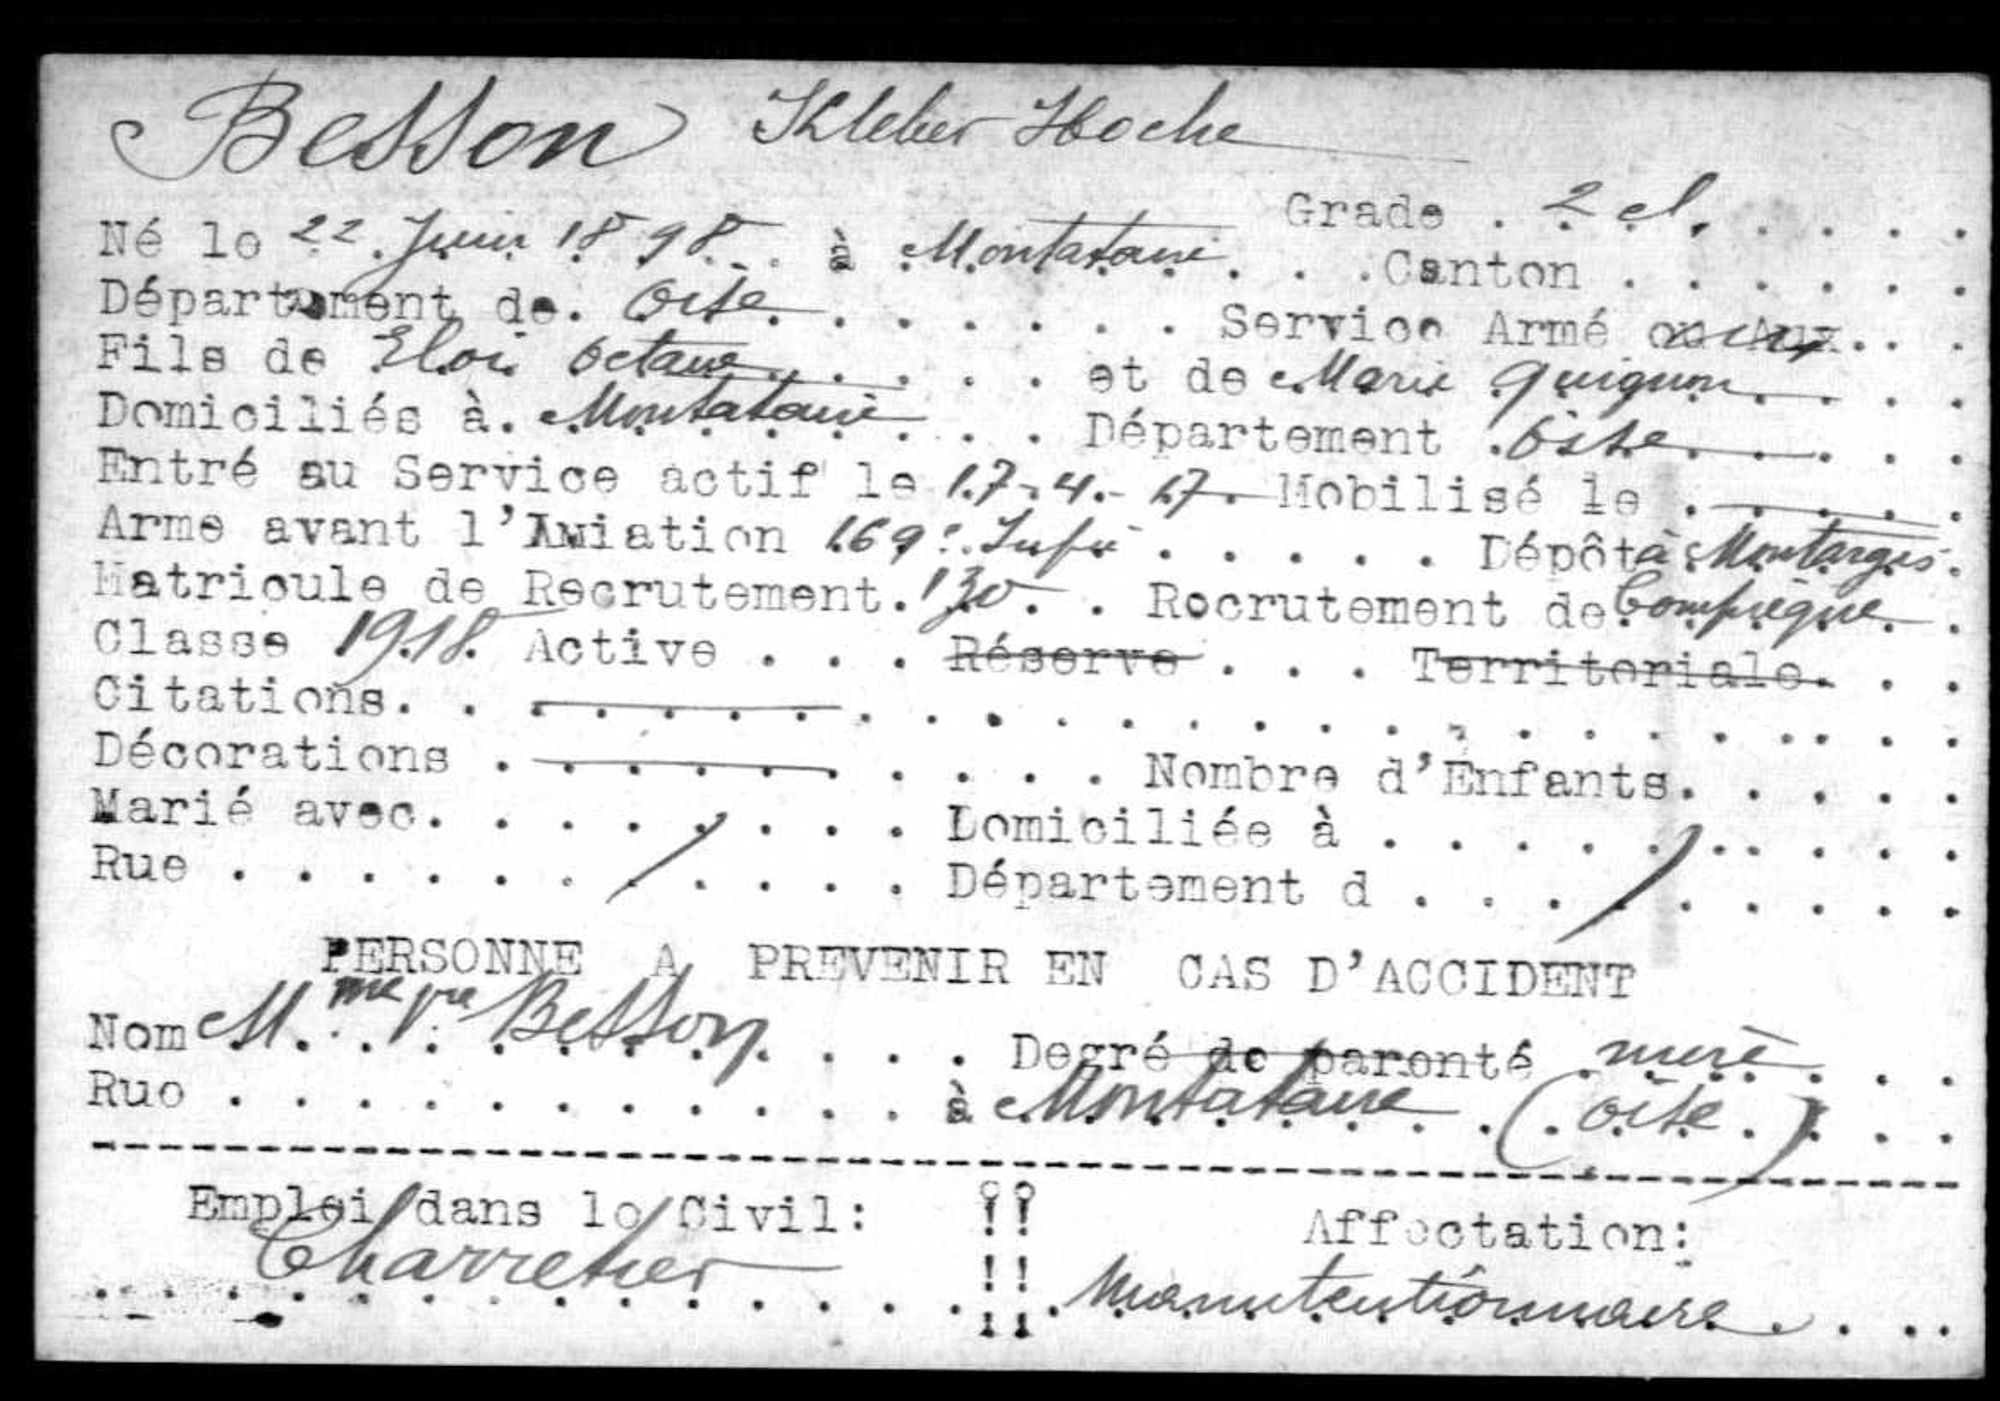 Besson Kleber Hoche
Grade . 2 cl.
Né le 22 Juin 1898 à Montataire . . . Canton . . . . . .
Département de. Oise. . . . . . . Service Armé ou Aux. . .
Fils de Eloi Octave . . . . . et de Marie Quignon . . . .
Domiciliés à. Montataire . . . Département . Oise . . . . .
Entré au Service actif le 17-4-17. Mobilisé le . . . . .
Arme avant l'Aviation 169e Infie . . . . . Dépôt à Montargis.
Matricule de Recrutement. 130. . Recrutement de Compiègne . .
Classe 1918. Active . . . Réserve . . . Territoriale. . .
Citations. . . . . . . . . . . . . . . . . . . . . . . .
Décorations . . . . . . . . . . Nombre d'Enfants. . . . .
Marié avec. . . . . . . . Domiciliée à . . . . . . . . .
Rue . . . . . . . . . . Département d . . . . . . . . .
PERSONNE A PREVENIR EN CAS D'ACCIDENT
Nom Mme Vve Besson . . . . Degré de parenté mère . . .
Rue . . . . . . . . . . . à Montataire . (Oise) . . .
Emploi dans le Civil: !! Affectation:
Charretier !! Manutentionnaire . . .